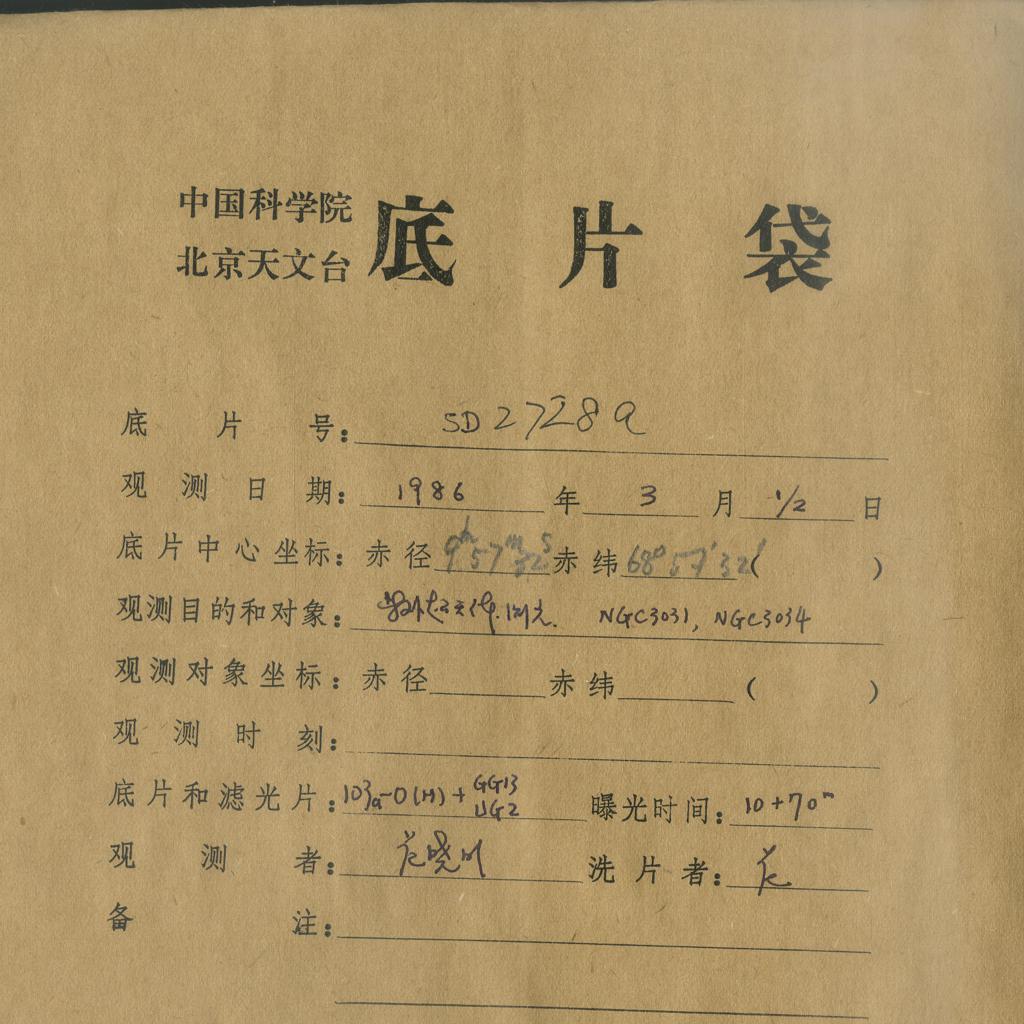 中国科学院
北京天文台
底片袋
底片号: SD2728a
观测日期: 1986年3月1/2日
底片中心坐标: 赤径9h57m32s赤纬68°57′32′( )
观测目的和对象: NGC3031, NGC3034
观测对象坐标: 赤径 赤纬 ( )
观测时刻:
底片和滤光片: 103a-O(H)+GG13 UG2 曝光时间: 10+70m
观测者: 晓 洗片者:
备注: